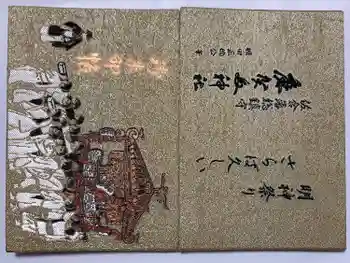 明神祭り
さらば久しい
佐倉藩総鎮守
麻賀多神社
御朱印帳